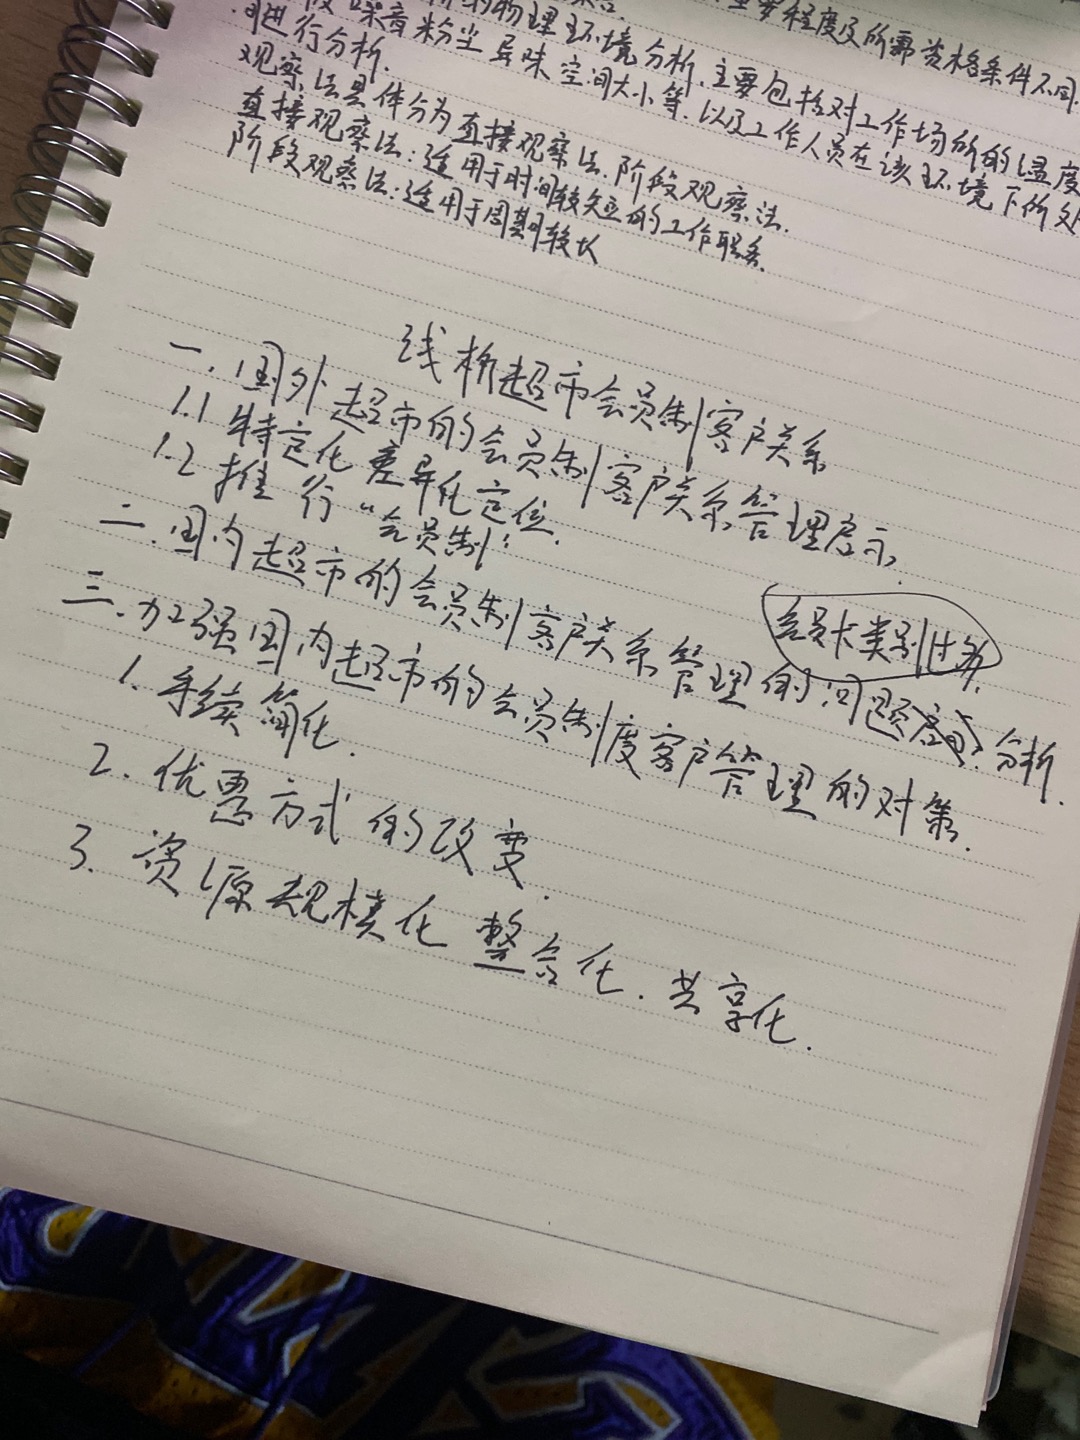 重要程度及所需资格条件不同.
物理环境分析.主要包括对工作场所的温度
噪音 粉尘 异味 空间大小等.以及工作人员在该环境下所处
间进行分析.
观察法具体分为直接观察法.阶段观察法.
直接观察法:适用于时间较短的工作职务.
阶段观察法:适用于周期较长
浅析超市会员制客户关系
一.国外超市的会员制客户关系管理启示.
1.1 特定化 差异化定位.
1.2 推行“会员制”
二.国内超市的会员制客户关系管理的问题分析.
会员卡类别
三.加强国内超市的会员制度客户管理的对策.
1.手续简化.
2.优惠方式的改变.
3.资源规模化 整合化.共享化.